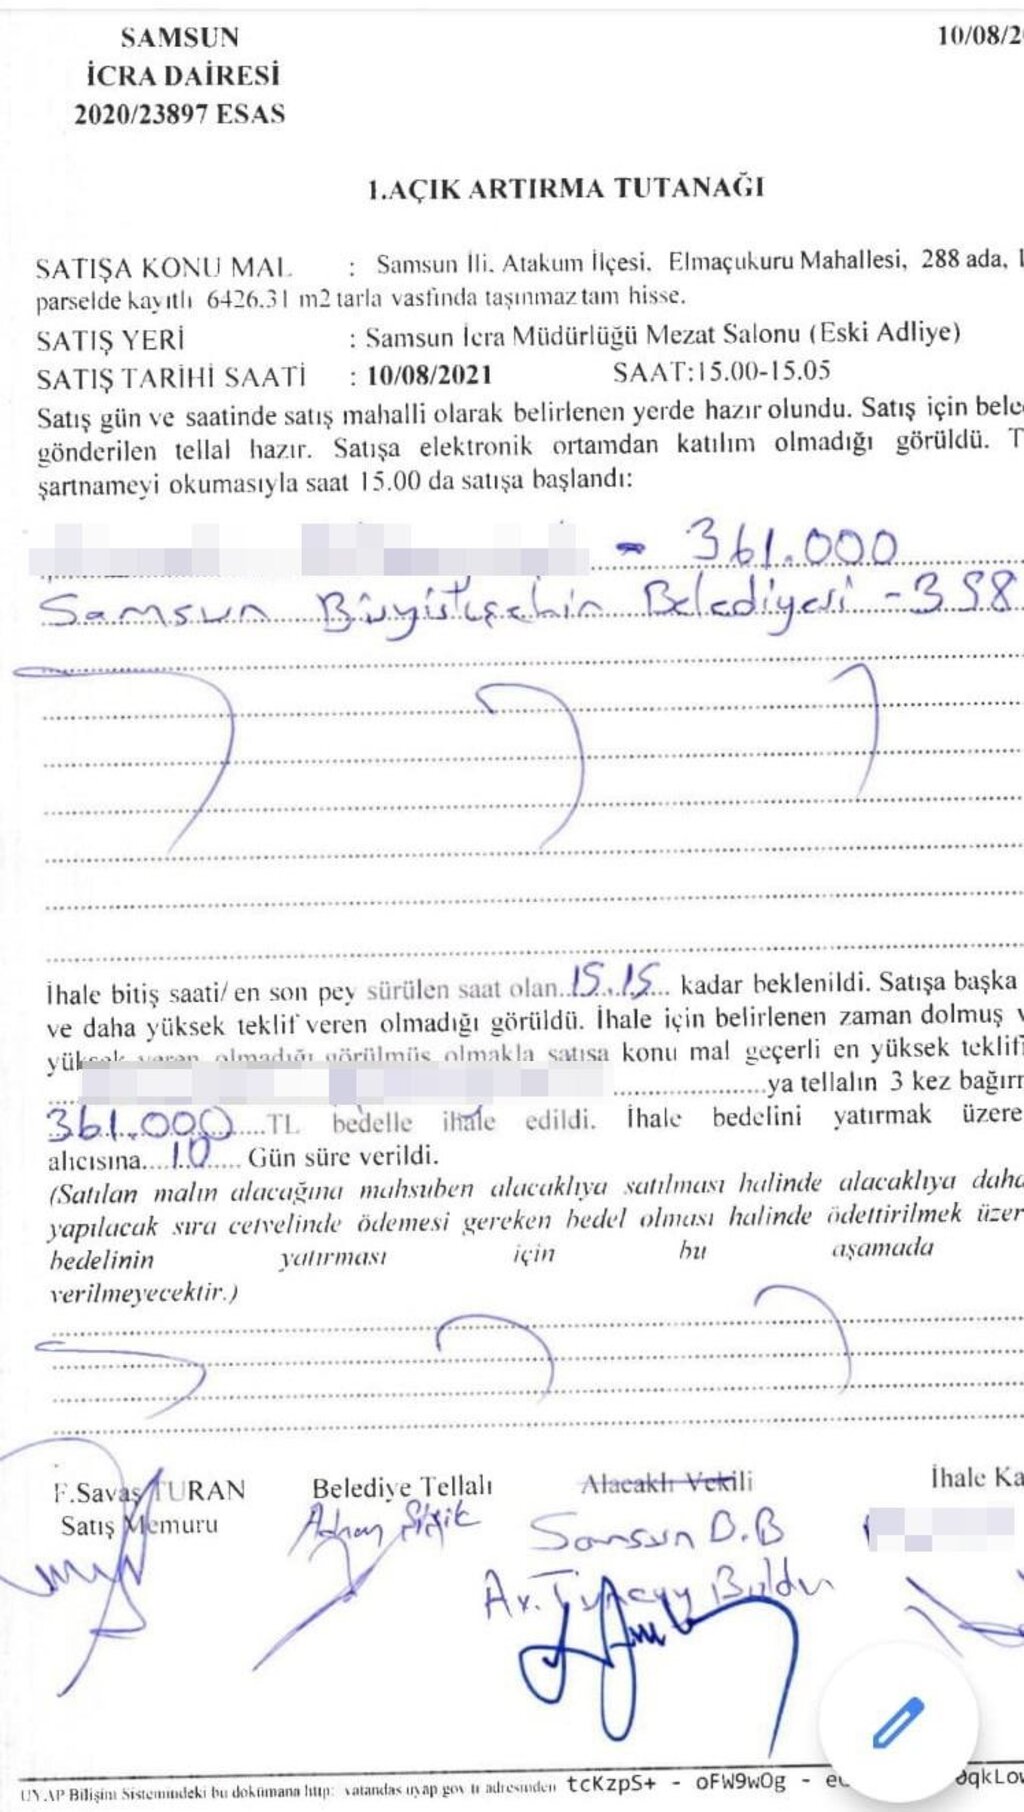 SAMSUN
10/08/2
İCRA DAİRESİ
2020/23897 ESAS
1.AÇIK ARTIRMA TUTANAĞI
SATIŞA KONU MAL : Samsun İli, Atakum İlçesi, Elmaçukuru Mahallesi, 288 ada,
parselde kayıtlı 6426.31 m2 tarla vasfında taşınmaz tam hisse.
SATIŞ YERİ : Samsun İcra Müdürlüğü Mezat Salonu (Eski Adliye)
SATIŞ TARİHİ SAATİ : 10/08/2021 SAAT:15.00-15.05
Satış gün ve saatinde satış mahalli olarak belirlenen yerde hazır olundu. Satış için bele
gönderilen tellal hazır. Satışa elektronik ortamdan katılım olmadığı görüldü. T
şartnameyi okumasıyla saat 15.00 da satışa başlandı:
- 361.000
Samsun Büyükşehir Belediyesi - 358
İhale bitiş saati/ en son pey sürülen saat olan..15.15... kadar beklenildi. Satışa başka
ve daha yüksek teklif veren olmadığı görüldü. İhale için belirlenen zaman dolmuş v
yüksek veren olmadığı görülmüş olmakla satışa konu mal geçerli en yüksek teklifi
..............ya tellalın 3 kez bağırr
361.000....TL bedelle ihale edildi. İhale bedelini yatırmak üzere
alıcısına....10.... Gün süre verildi.
(Satılan malın alacağına mahsuben alacaklıya satılması halinde alacaklıya daha
yapılacak sıra cetvelinde ödemesi gereken bedel olması halinde ödettirilmek üzer
bedelinin yatırması için bu aşamada
verilmeyecektir.)
F.Savaş TURAN Belediye Tellalı Alacaklı Vekili İhale Ka
Satış Memuru Samsun B.B
Av.
UYAP Bilişim Sistemindeki bu dokümana http: vatandas.uyap.gov.tr adresinden tcKzpS+ - oFW9wOg - e